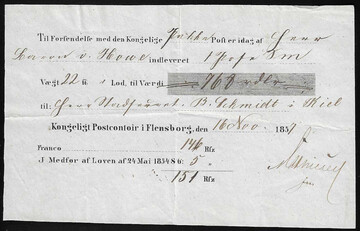 Til Forsendelse med den Kongelige Pakke Post er idag af Herr
Baron v. Howe indleveret 1 Pose Sm
Vægt 22 ℔ Lod, til Værdi 768 rdlr
til: Herr Stadssecret. B. Schmidt i Kiel
Kongeligt Postcontoir i Flensborg, den 16 Nov. 1857
Franco 146 Rſz
J Medfør af Loven af 24 Mai 1854 § 6: 5 Rſz
151 Rſz